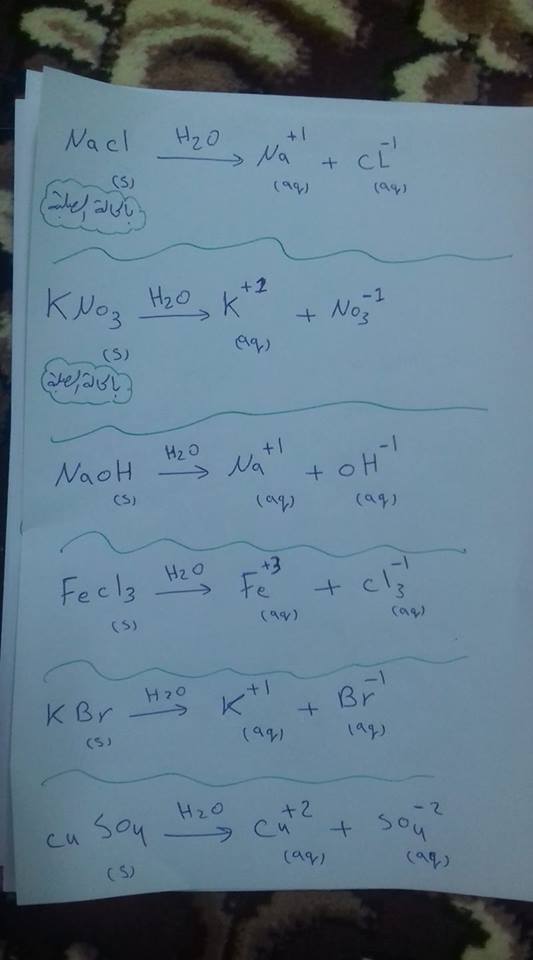 Nacl (s) —H2O→ Na+1 (aq) + CL-1 (aq)
KNO3 (s) —H2O→ K+1 (aq) + NO3-1
NaOH (s) —H2O→ Na+1 (aq) + OH-1 (aq)
Fe cl3 (s) —H2O→ Fe+3 (aq) + cl3-1 (aq)
K Br (s) —H2O→ K+1 (aq) + Br-1 (aq)
cu SO4 (s) —H2O→ Cu+2 (aq) + SO4-2 (aq)